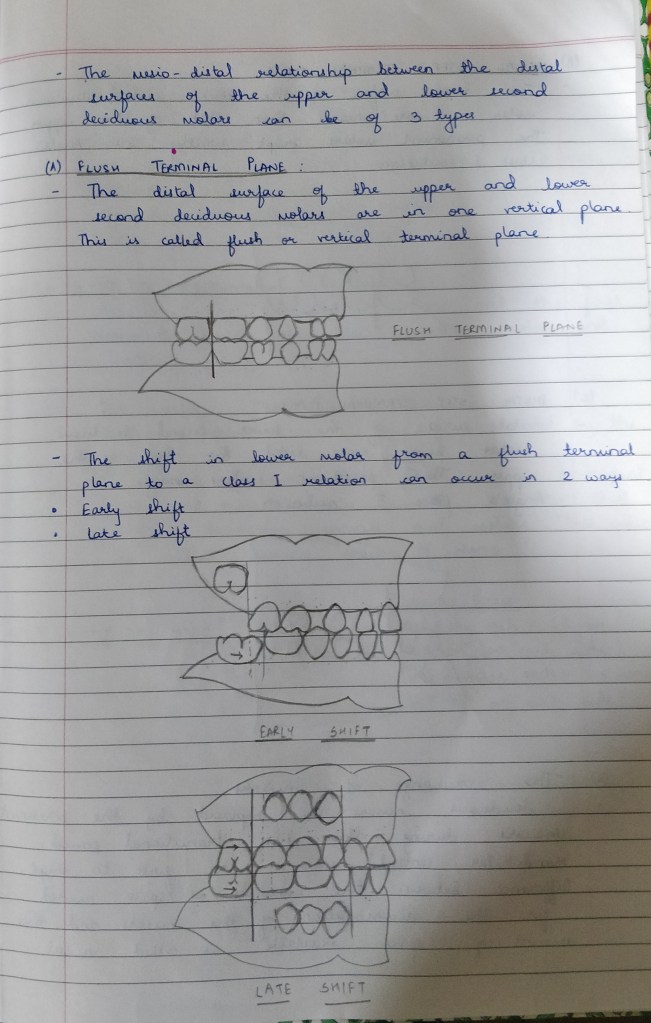 - The mesio-distal relationship between the distal
surfaces of the upper and lower second
deciduous molars can be of 3 types
(A) FLUSH TERMINAL PLANE :
- The distal surface of the upper and lower
second deciduous molars are in one vertical plane.
This is called flush or vertical terminal plane.
FLUSH TERMINAL PLANE
- The shift in lower molar from a flush terminal
plane to a class I relation can occur in 2 ways
• Early shift
• Late shift
EARLY SHIFT
LATE SHIFT